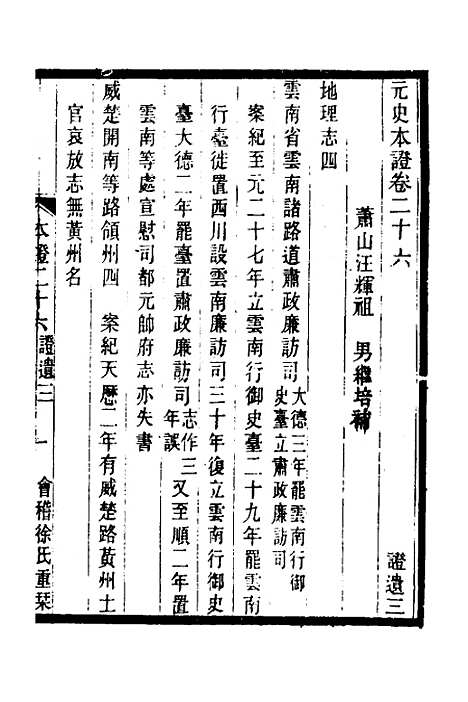 元史本證卷二十六　證遺三
蕭山汪輝祖　男繼培補
地理志四
雲南省雲南諸路道肅政廉訪司大德三年罷雲南行御史臺立肅政廉訪司
案紀至元二十七年立雲南行御史臺二十九年罷雲南
行臺徙置西川設雲南廉訪司三十年復立雲南行御史
臺大德二年罷臺置肅政廉訪司志作三年誤又至順二年置
雲南等處宣慰司都元帥府志亦失書
威楚開南等路領州四　案紀天曆二年有威楚路黃州土
官哀放志無黃州名
本證二十六　證遺三　一　會稽徐氏重栞